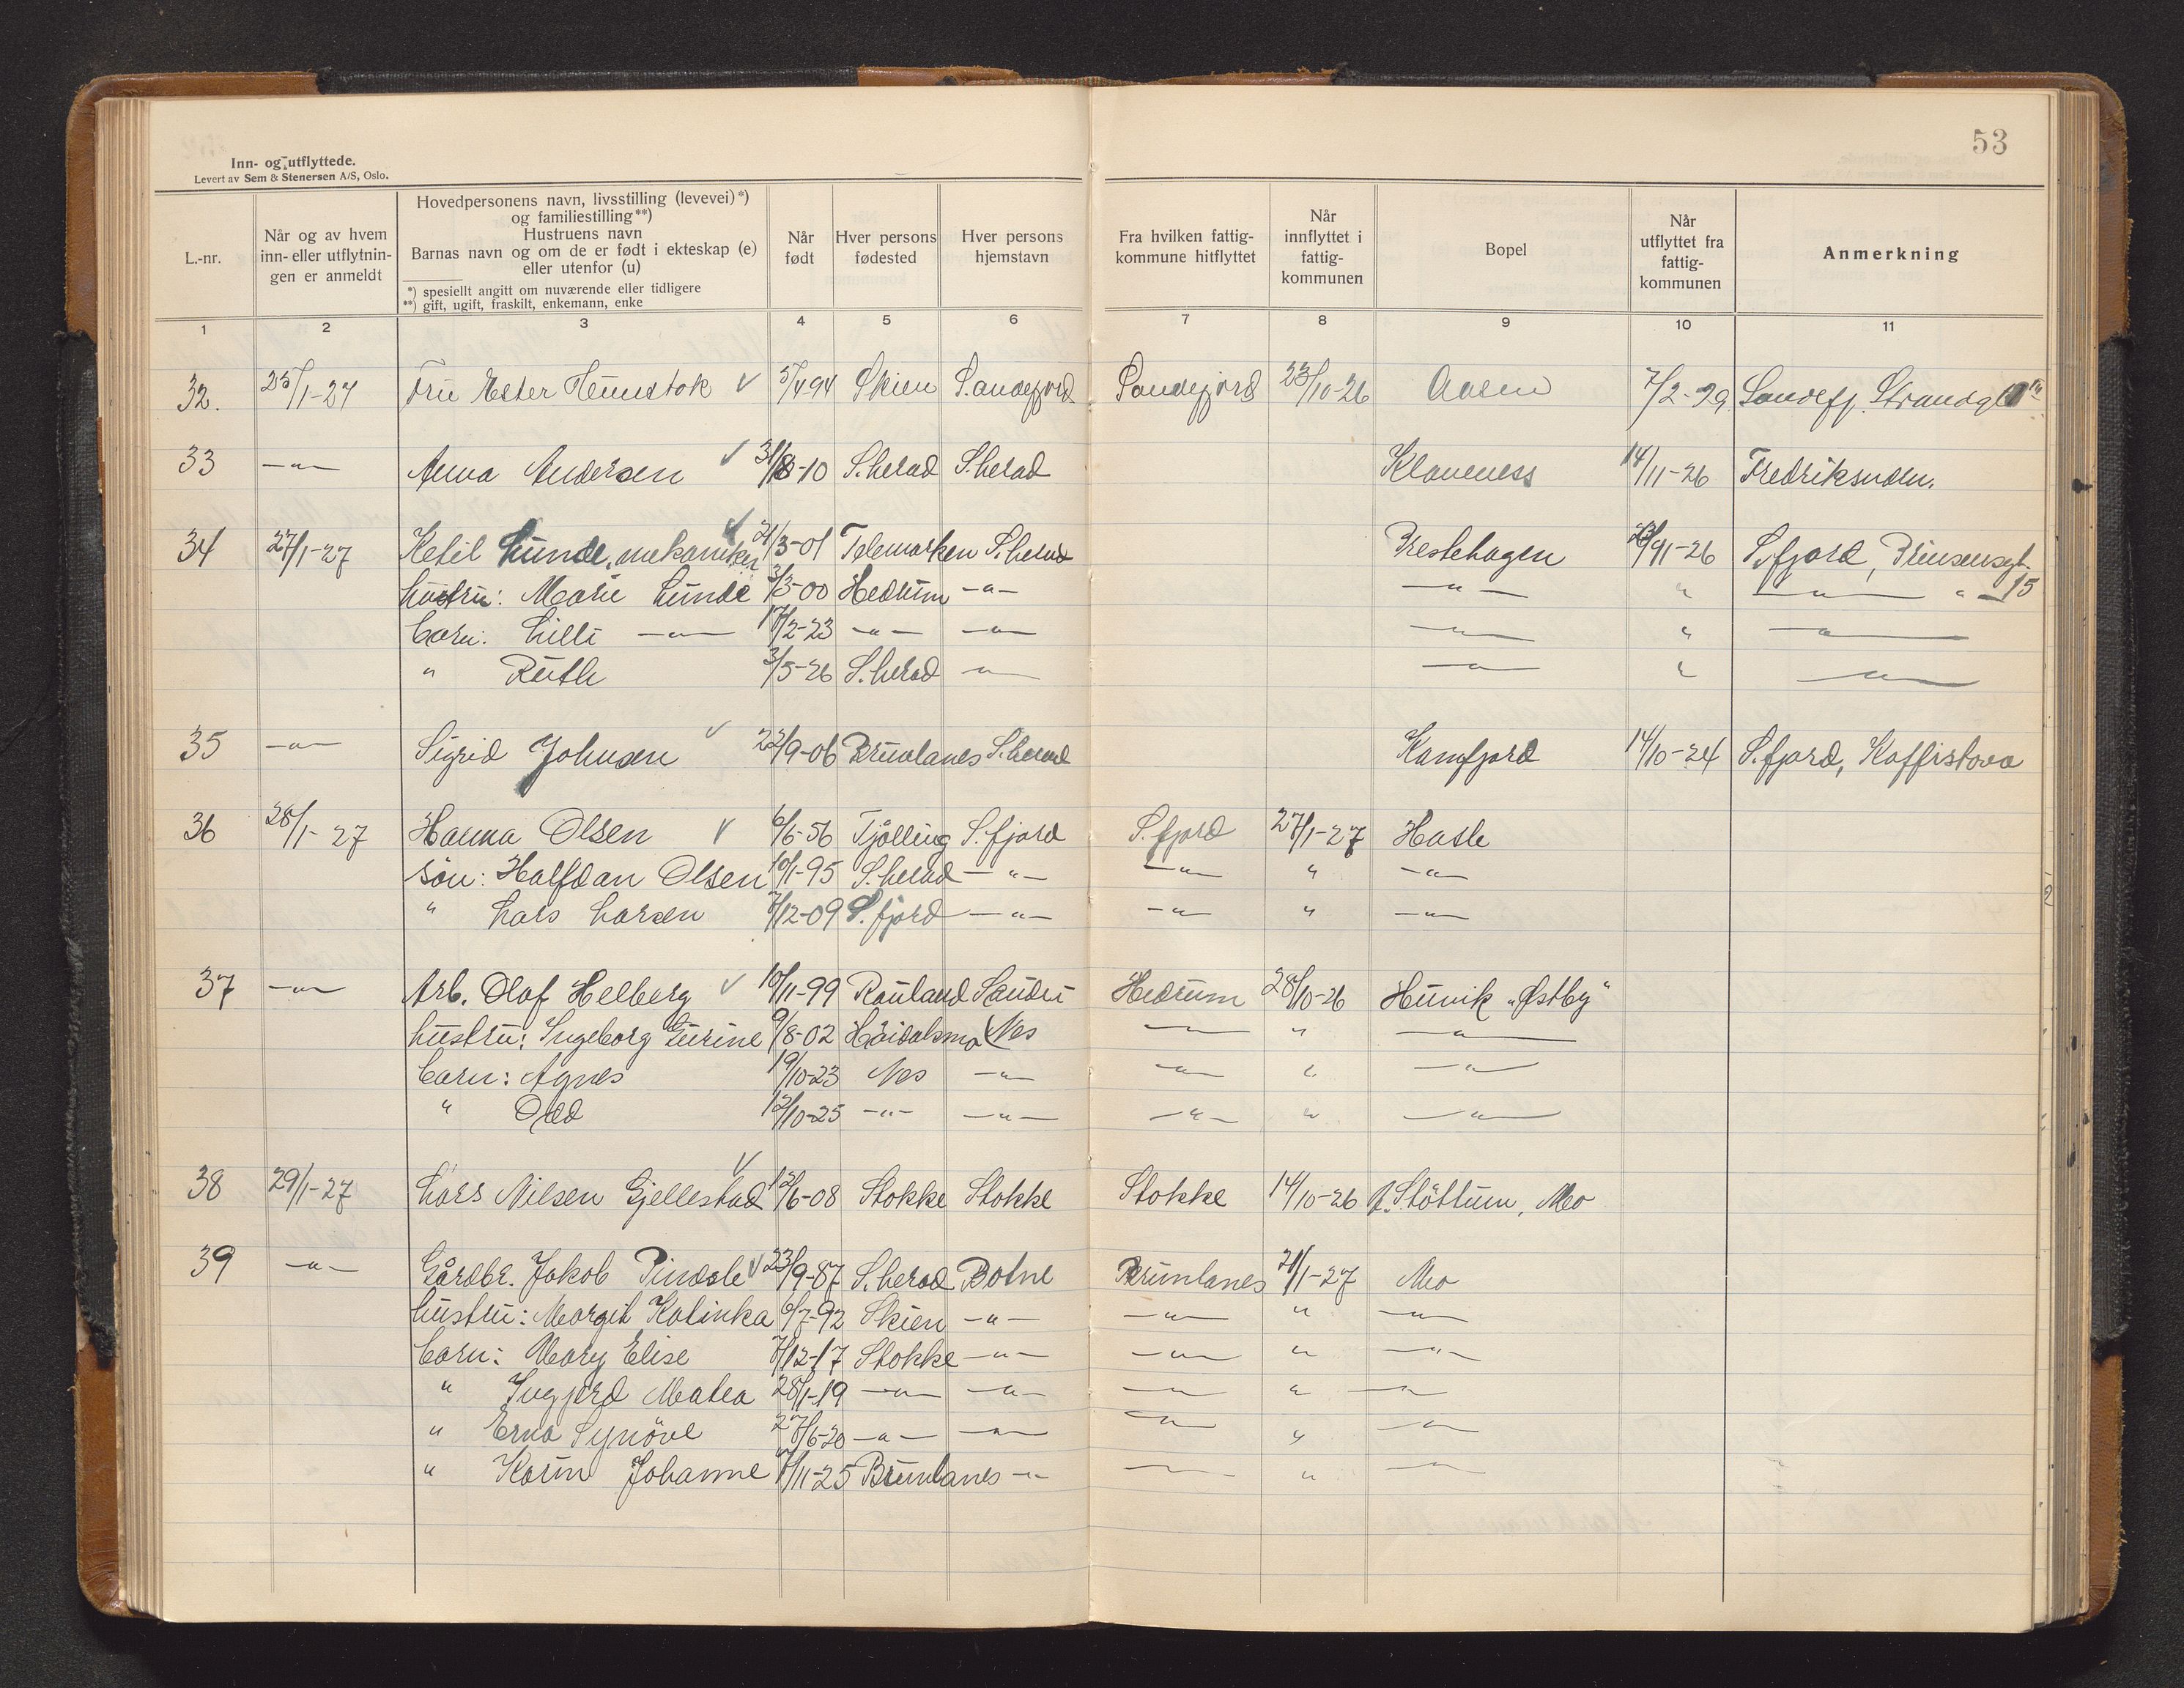 53
Inn- og utflyttede.
Levert av Sem & Stenersen A/S, Oslo.
L.-nr. | Når og av hvem inn- eller utflytningen er anmeldt | Hovedpersonens navn, livsstilling (levevei)*) og familiestilling**) Hustruens navn Barnas navn og om de er født i ekteskap (e) eller utenfor (u) *) spesiellt angitt om nuværende eller tidligere **) gift, ugift, fraskilt, enkemann, enke | Når født | Hver persons fødested | Hver persons hjemstavn | Fra hvilken fattigkommune hitflyttet | Når innflyttet i fattigkommunen | Bopel | Når utflyttet fra fattigkommunen | Anmerkning
1 2 3 4 5 6 7 8 9 10 11
32. 25/1-27 Fru Ester Heimstok v 5/4-94 Skien Sandefjord Sandefjord 23/10-26 Aasen 7/2-29 Sandefj. Strandgt
33 -"- Anna Andersen v 31/8-10 S.herad S.herad Klaveness 14/11-26 Fredriksvdn.
34 27/1-27 Ketil Lunde, mekaniker v 21/3-01 Telemarken S.herad Prestehagen S.fjord, Prinsensgt.
hustru: Marie Lunde 3/3-00 Hedrum -"- -"- " -"- " 15
barn: Lilli -"- 17/2-23 -"- -"- -"- " -"-
" Ruth 3/5-26 S.herad -"- -"- " -"-
35 -"- Sigrid Johnsen v 22/9-06 Brunlanes S.herad Kamfjord 14/10-24 S.fjord, Kaffistova
36 28/1-27 Hanna Olsen v 6/6-56 Tjølling S.fjord S.fjord 27/1-27 Hasle
søn: Halfdan Olsen 10/1-95 S.herad -"- -"- " -"-
" Lars Larsen 7/12-09 S.fjord -"- -"- " -"-
37 -"- Arb. Olaf Helberg v 10/11-99 Rauland Saude Hedrum 28/10-26 Hunvik "Østby"
hustru: Ingeborg Gurine 9/8-02 Høidalsmo (Nes -"- " -"-
barn: Agnes 19/10-23 Nes -"- -"- " -"-
" Odd 12/10-25 -"- -"- -"- " -"-
38 29/1-27 Lars Nilsen Gjellestad v 12/6-08 Stokke Stokke Stokke 14/10-26 Støttum, Mo
39 -"- Gårdbr. Jakob Pindsle v 23/9-87 S.herad Botne Brunlanes 21/1-27 Mo
hustru: Margit Katinka 6/7-92 Skien -"- -"- " -"-
barn: Mary Elise 7/12-17 Stokke -"- -"- " -"-
" Ingjerd Matea 28/1-19 -"- -"- -"- " -"-
" Erna Synøve 27/6-20 -"- -"- -"- " -"-
" Karin Johanne 7/11-25 Brunlanes -"- -"- " -"-